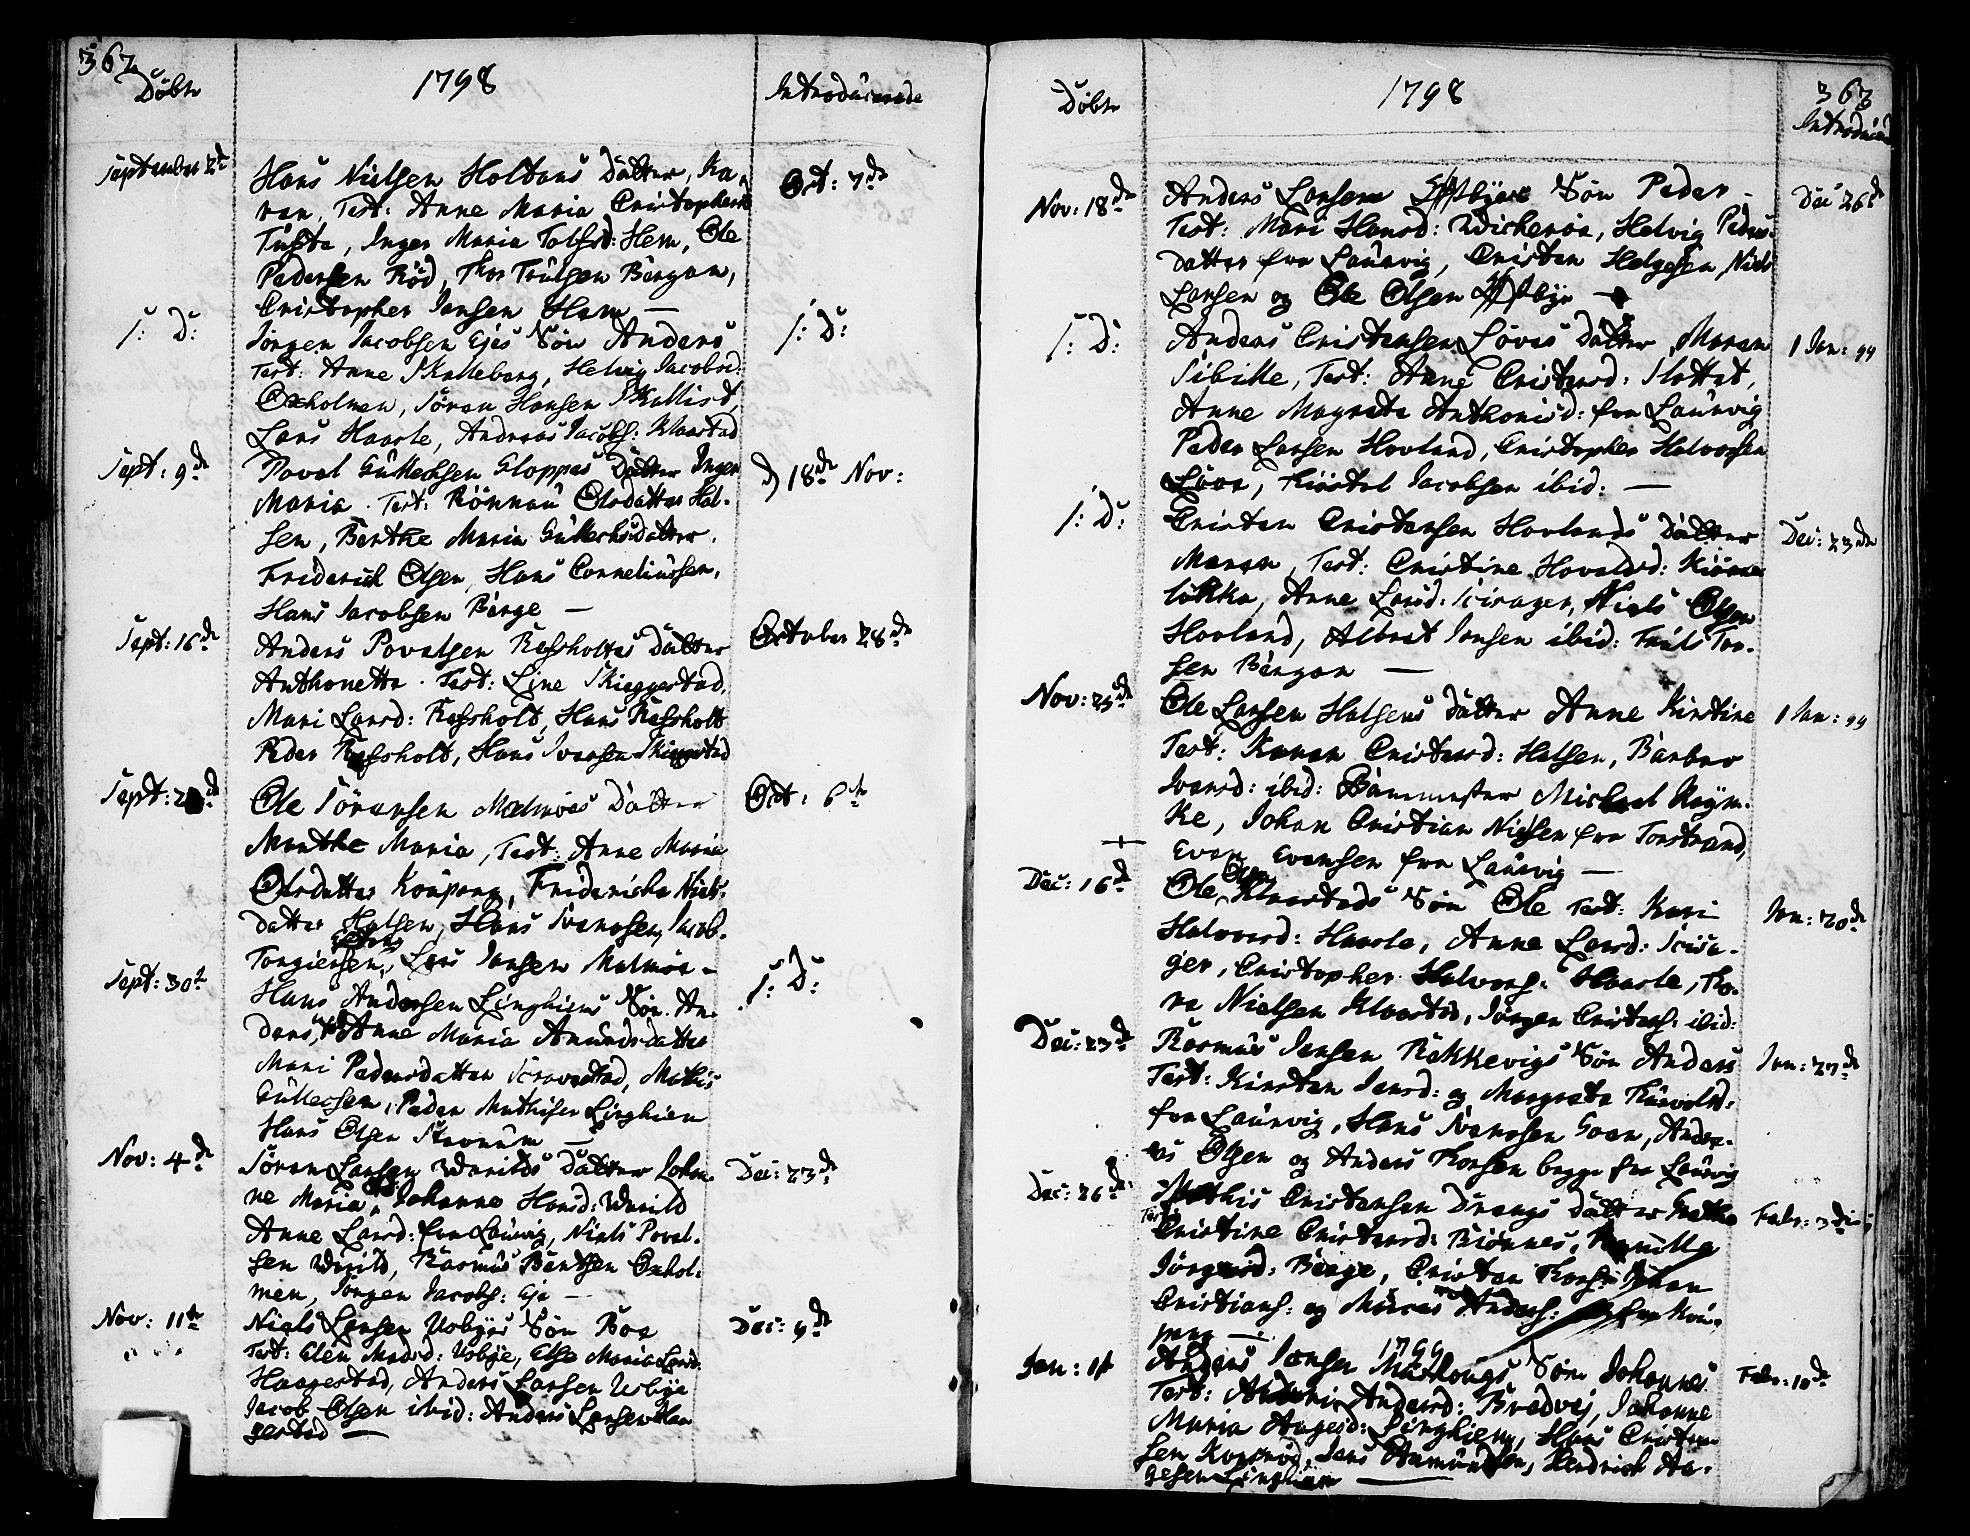 362
Döbte 1798 Introducerede
September 2de Hans Nielsen Holtans Datter, Ka-
ren, Test: Anne Maria Cristophersd
Tufte, Inger Maria Tolfsd: Hem, Ole
Pedersen Röd, Thor Trulsen Bergan,
Cristopher Jansen Hem —
Oct: 7de
s: D: Jörgen Jacobsen Ejes Sön Anders
Test: Anne Skalleberg, Helvig Jacobsd:
Oxholmen, Sören Hansen Skallist,
Lars Haasle, Andreas Jacobs: Klaastad
s: D:
Sept: 9de Povel Gullechsen Gloppes Datter Inger
Maria. Test: Rönnau Olsdatter Hal-
sen, Berthe Maria Gullechsdatter,
Friderich Olsen, Hans Corneliussen,
Hans Jacobsen Berge —
d 18de Nov:
Sept: 16de Anders Povelsen Ræsholtes Datter
Anthonette. Test: Line Skieggestad,
Mari Larsd: Ræsholt, Hans Ræsholt
Peder Ræsholt, Hans Iversen Skieggestad
October 28de
Sept: Ole Sörensen Malmöes Datter
Marthe Maria, Test: Anne Maria
Olsdatter Koupang, Fridericka Niels-
datter Halsen, Hans Svensen, Jacob
Torgiersen, Lars Jansen Malmöe —
Oct: 6te
Sept: 30te Hans Andersen Linghiems Sön An-
ders, Test: Anne Maria Amundsdatter
Mari Pedersdatter, Mathis
Gullecsen, Peder Mathisen Linghiem
Hans Olsen Stavnum —
s: D:
Nov: 4de Sören Larsen Varilds Datter Johan-
ne Maria, Johanne Hansd: Varild
Anne Larsd: fra Laurvig, Niels Povel-
sen Varild, Rasmus Bentsen Oxhol-
men, Jörgen Jacobs: Eje —
Dec: 23de
Nov: 11te Niels Larsen Usbyes Sön Boe
Test: Elen Madsd: Usbye, Else Maria Larsd:
Haagestad, Anders Larsen Usbye
Jacob Olsen ibid: Anders Larsen
gestad —
Dec: 9de
363
Döbte 1798 Introducered
Nov: 18de Anders Larsens Østbyes Sön Peder —
Test: Mari Hansd: Wicheröe, Helvig Peders-
datter fra Laurvig, Cristen Helgesen, Niels
Larsen og Ole Olsen Østbye —
Dec 26de
s: D: Anders Cristensen Löves Datter, Maren
Sibille, Test: Anne Cristensd: Slottet,
Anne Magrete Anthonisd: fra Laurvig
Peder Larsen Hovland, Cristopher Halvorsen
Löve, Kiöstel Jacobsen ibid: —
1 Jan: 99
s: D: Cristen Cristensen Hovlands Datter
Maren, Test: Cristine Hovaldsd: Kiönne
lökke, Anne Larsd: Seierager, Niels Olsen
Hovland, Albret Jonsen ibid: Truls Tor-
sen Bergan —
Dec: 23de
Nov: 25de Ole Larsen Halsens Datter Anne Kirstine
Test: Karen Cristensd: Halsen, Barbro
Iversd: ibid: Bömmester Michael Reym-
ke, Johan Cristian Nielsen fra Torstrand,
Even Evensen fra Laurvig —
1 Jan: 99
Dec: 16de Ole Olsen Klaastads Sön Ole Test: Kari
Halvorsd: Haasle, Anne Larsd: Seiera-
ger, Cristopher Halvors: Haasle, To-
re Nielsen Klaastad, Jörgen Cristens: ibid:
Jan: 20de
Dec: 23de Rasmus Jensen Rækkevigs Sön Anders
Test: Kirsten Jensd: og Margrete Torvoldsd:
fra Laurvig, Hans Svensen Goen, Andre-
as Olsen og Anders Thorsen begge fra Laurvig
Jan: 27de
Dec: 26de Mathis Cristensen Drengs Datter Grethe
Test: Cristine Cristensd: Biönnes, Pernille
Jörgensd: Berge, Cristen Thors: Johan
Cristians: og Marcus Anders: fra Kou-
pang —
Febr: 3die
1799
Jan: 1te Anders Jonsen Mærkongs Sön Johannes
Test: Andersd: Bredvej, Johanne
Maria Aagesd: Linghiem, Hans Cristen-
sen Kongsröd, Jens Amundsen, Hendrich Aa-
gesen Linghiem —
Febr: 10de